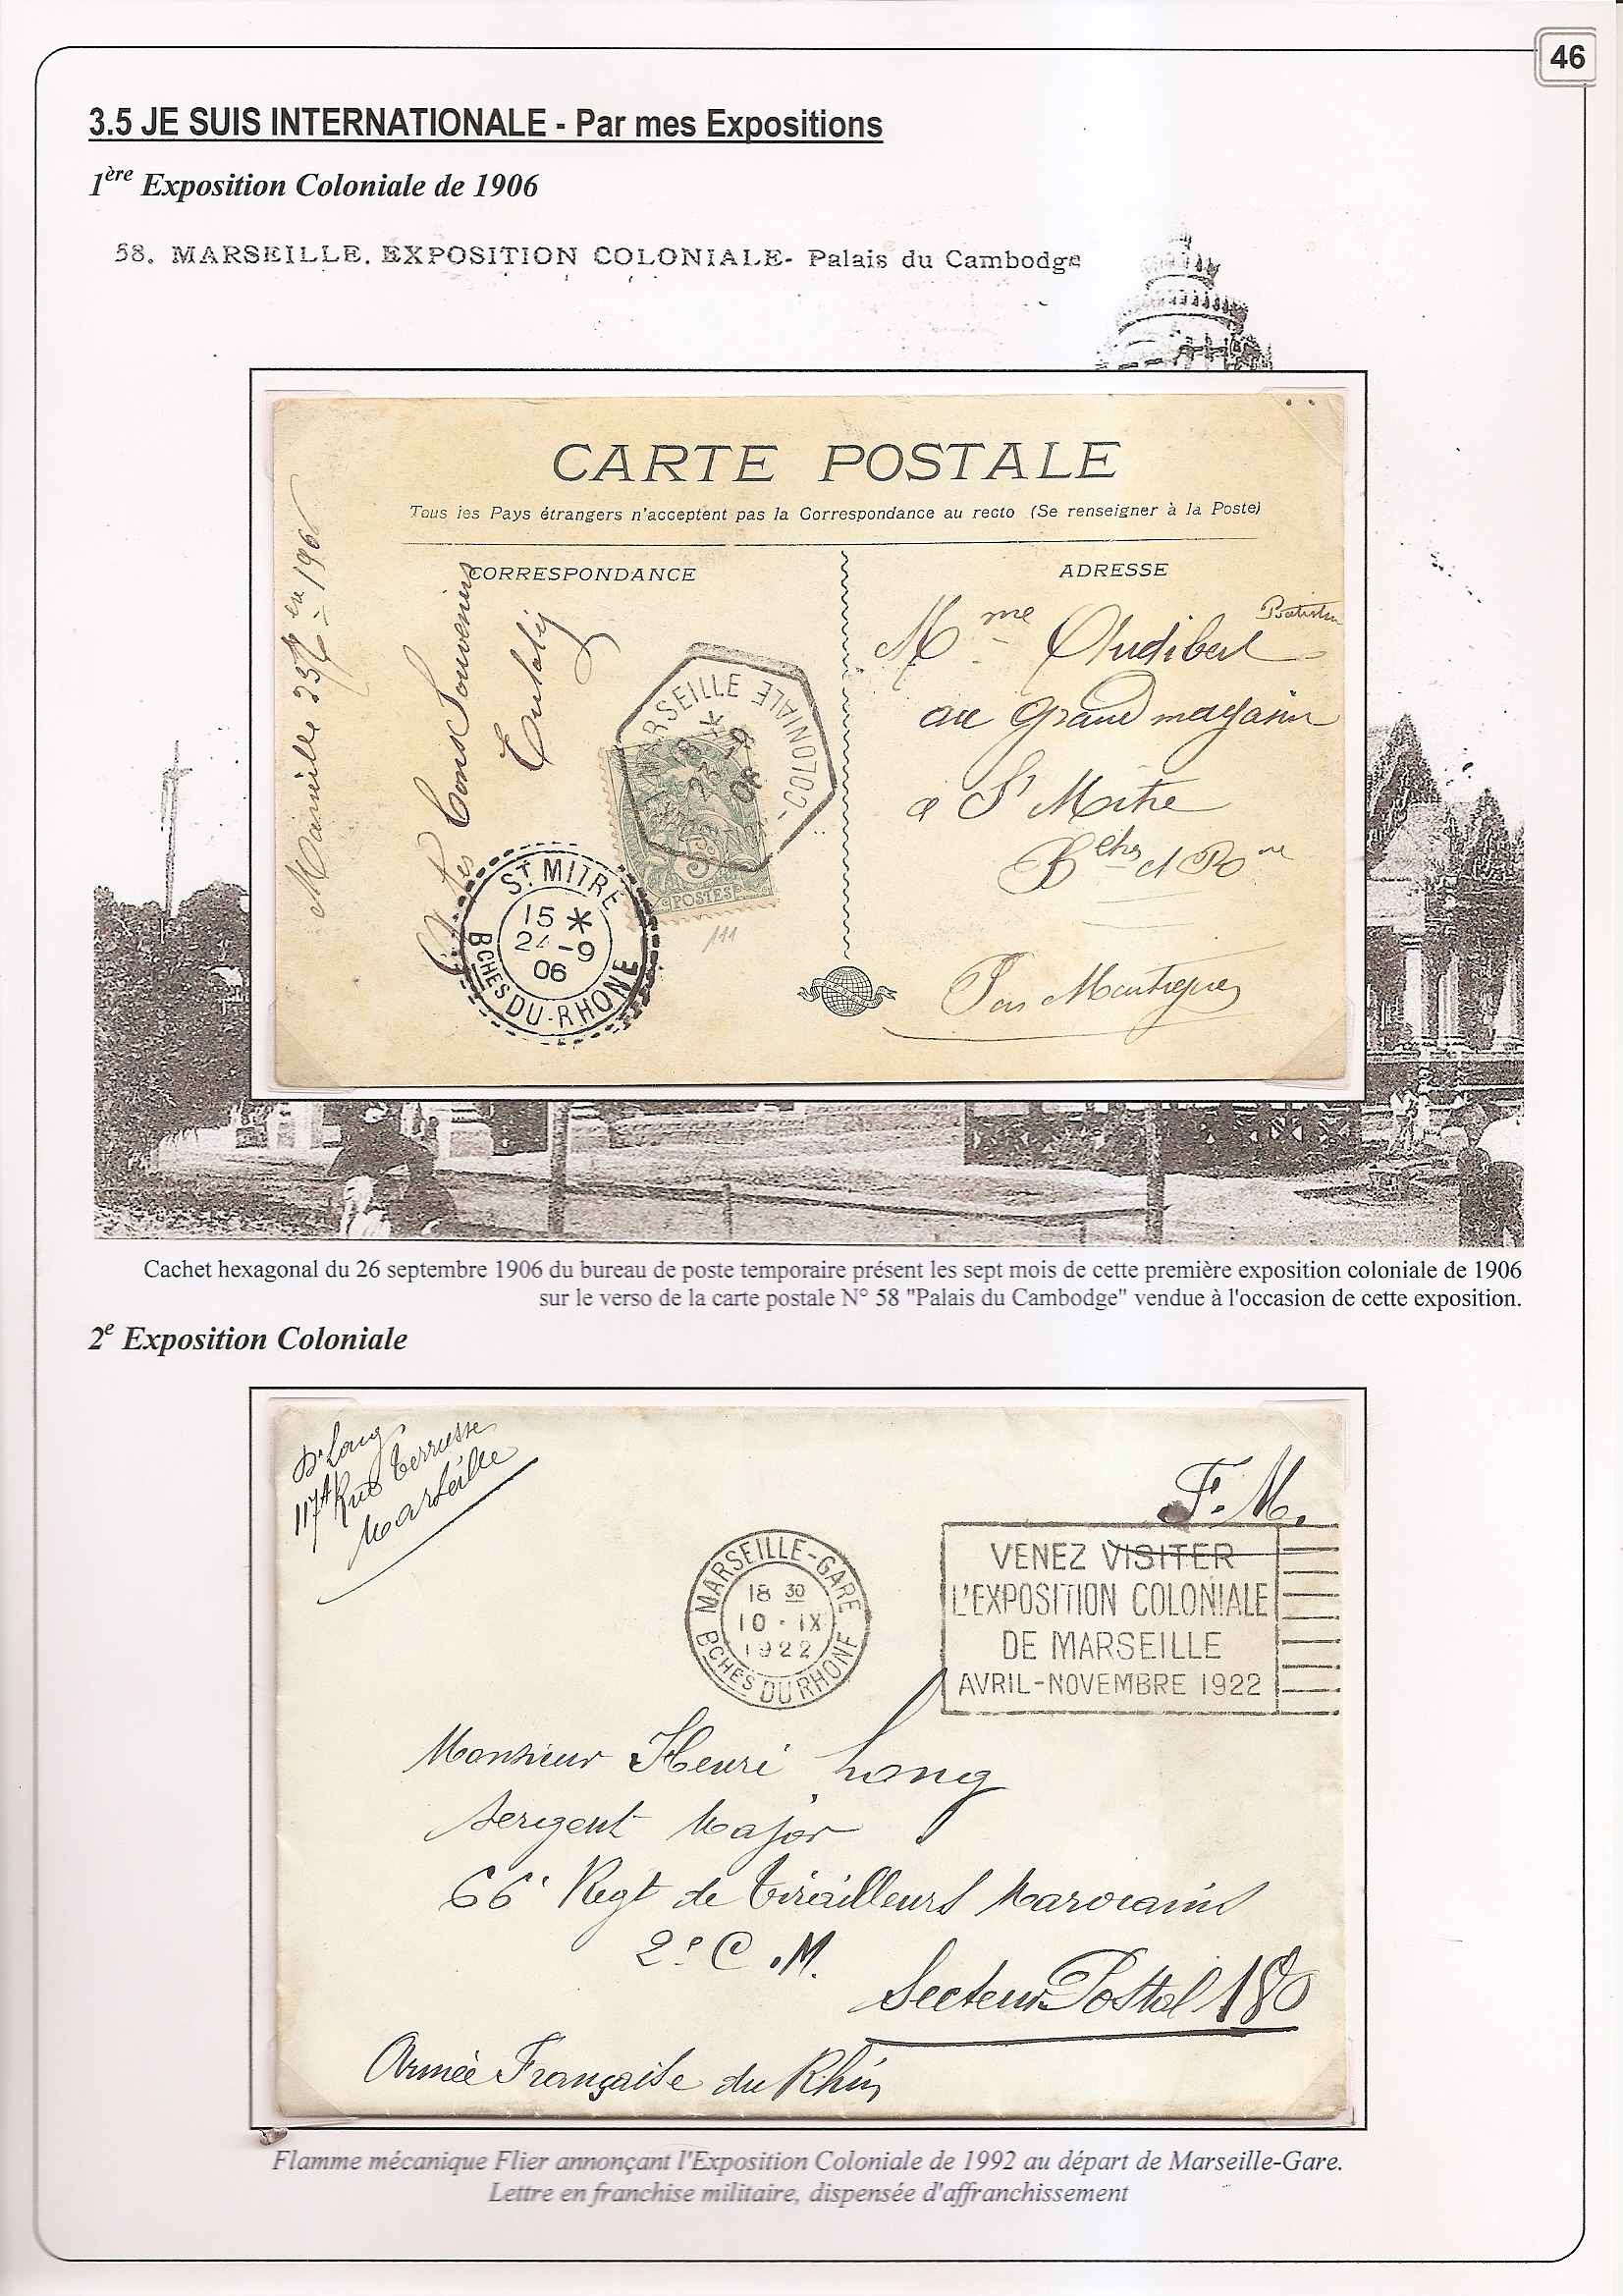 46
3.5 JE SUIS INTERNATIONALE - Par mes Expositions
1ère Exposition Coloniale de 1906
58. MARSEILLE. EXPOSITION COLONIALE- Palais du Cambodge
CARTE POSTALE
Tous les Pays étrangers n'acceptent pas la Correspondance au recto (Se renseigner à la Poste)
CORRESPONDANCE
ADRESSE
Marseille
Bons Souvenirs
MARSEILLE COLONIALE
POSTES
ST MITRE
15 *
24-9
06
BCHES DU-RHONE
111
Mme Audibert
au grand magasin
a St Mitre
Bches d Rone
Par Martigues
Cachet hexagonal du 26 septembre 1906 du bureau de poste temporaire présent les sept mois de cette première exposition coloniale de 1906
sur le verso de la carte postale N° 58 "Palais du Cambodge" vendue à l'occasion de cette exposition.
2e Exposition Coloniale
Dr Long
117A Rue Terrusse
Marseille
F.M.
MARSEILLE-GARE
18 30
10 - IX
1922
BCHES DU RHONE
VENEZ VISITER
L'EXPOSITION COLONIALE
DE MARSEILLE
AVRIL-NOVEMBRE 1922
Monsieur Henri Long
Sergent Major
66e Regt de Tirailleurs Marocains
2e C.M.
Secteur Postal 180
Armée Française du Rhin
Flamme mécanique Flier annonçant l'Exposition Coloniale de 1992 au départ de Marseille-Gare.
Lettre en franchise militaire, dispensée d'affranchissement